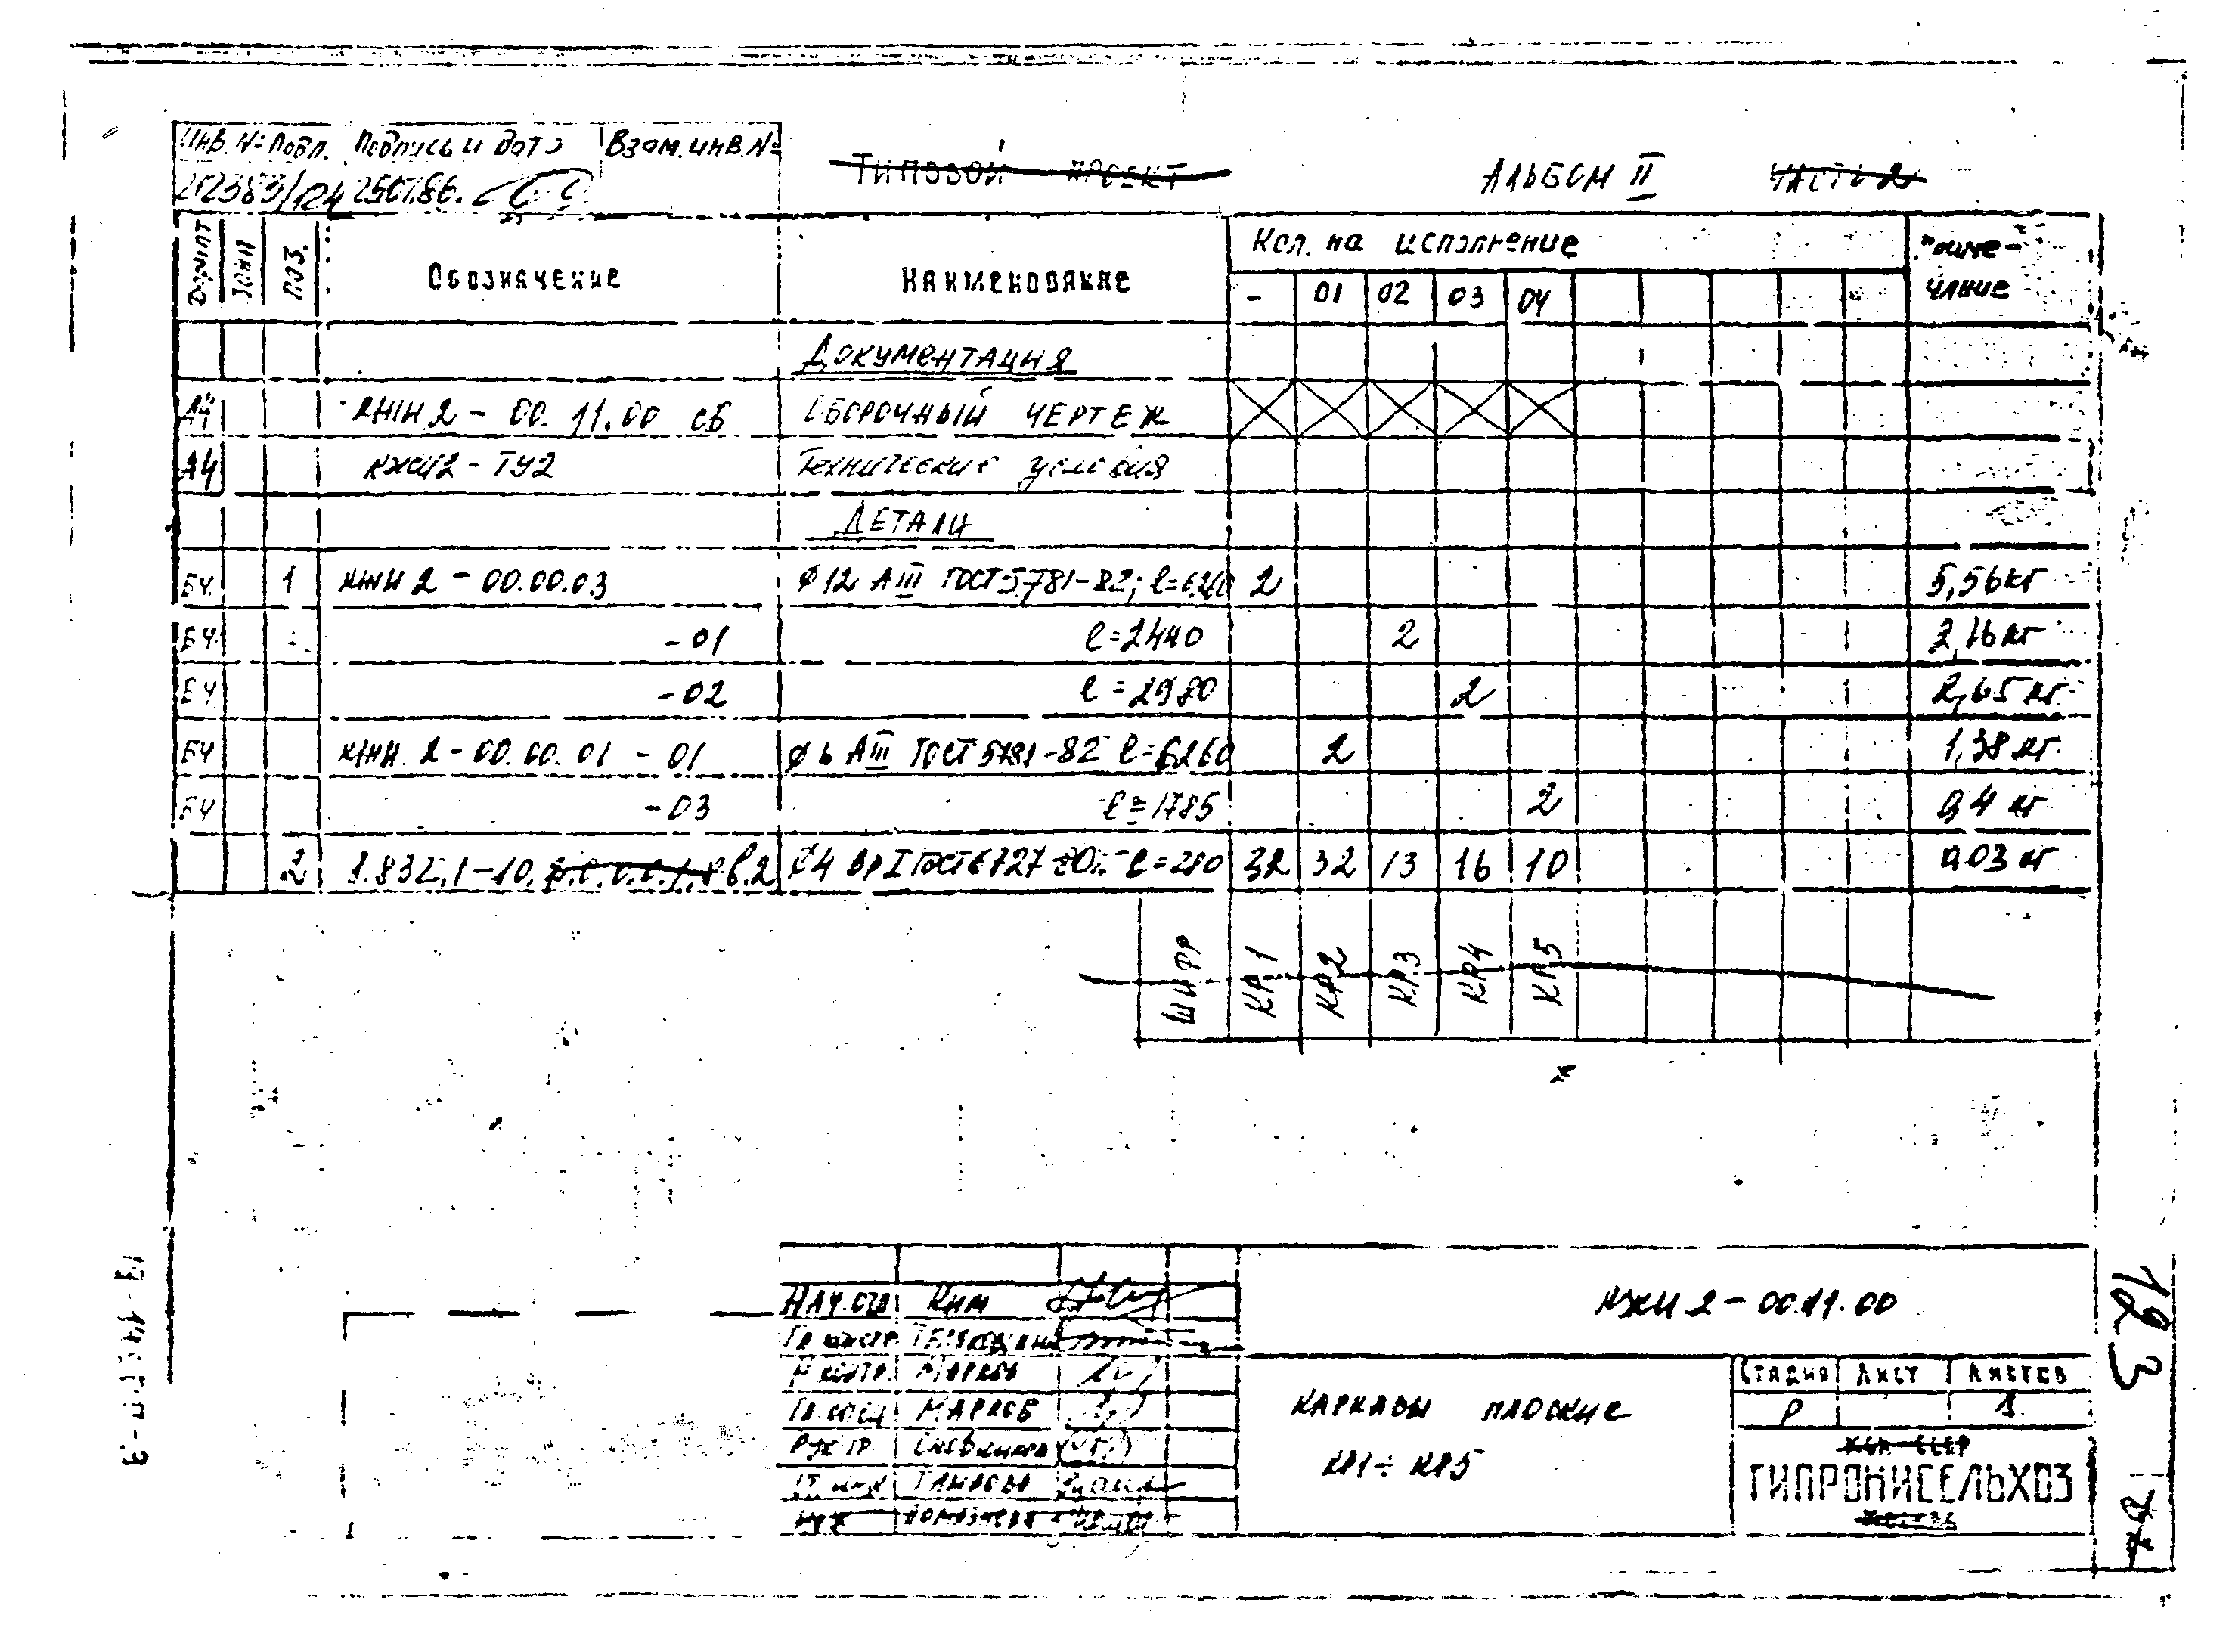 Инв. № подл. Подпись и дата Взам. инв. №
202383/124 25.07.86.
ТИПОВОЙ ПРОЕКТ АЛЬБОМ II ЧАСТЬ 2
Формат Зона Поз. Обозначение Наименование Кол. на исполнение Приме-
чание
- 01 02 03 04
Документация
А4 КЖИ 2 - 00.11.00 СБ Сборочный чертеж
А4 КЖИ2 - ТУ2 Технические условия
Детали
БЧ 1 КЖИ 2 - 00.00.03 ø 12 АIII ГОСТ 5781-82; l=6260 2 5,56 кг
БЧ -01 l=2440 2 2,16 кг
БЧ -02 l=2980 2 2,65 кг
БЧ КЖИ 2 - 00.00.01 - 01 ø 6 АIII ГОСТ 5781-82 l=6260 2 1,38 кг
БЧ -03 l=1785 2 0,4 кг
2 1.832.1-10. в.2 ø4 ВрI ГОСТ 6727-80 l=280 32 32 13 16 10 0,03 кг
Шифр КР1 КР2 КР3 КР4 КР5
Нач. отд Ким
КЖИ 2 - 00.11.00
Н контр. Марков
Гл. спец Марков
Рук гр
Ст. инж
Инж
Каркасы плоские
КР1÷КР5
Стадия Лист Листов
Р 1
ГИПРОНИСЕЛЬХОЗ
123